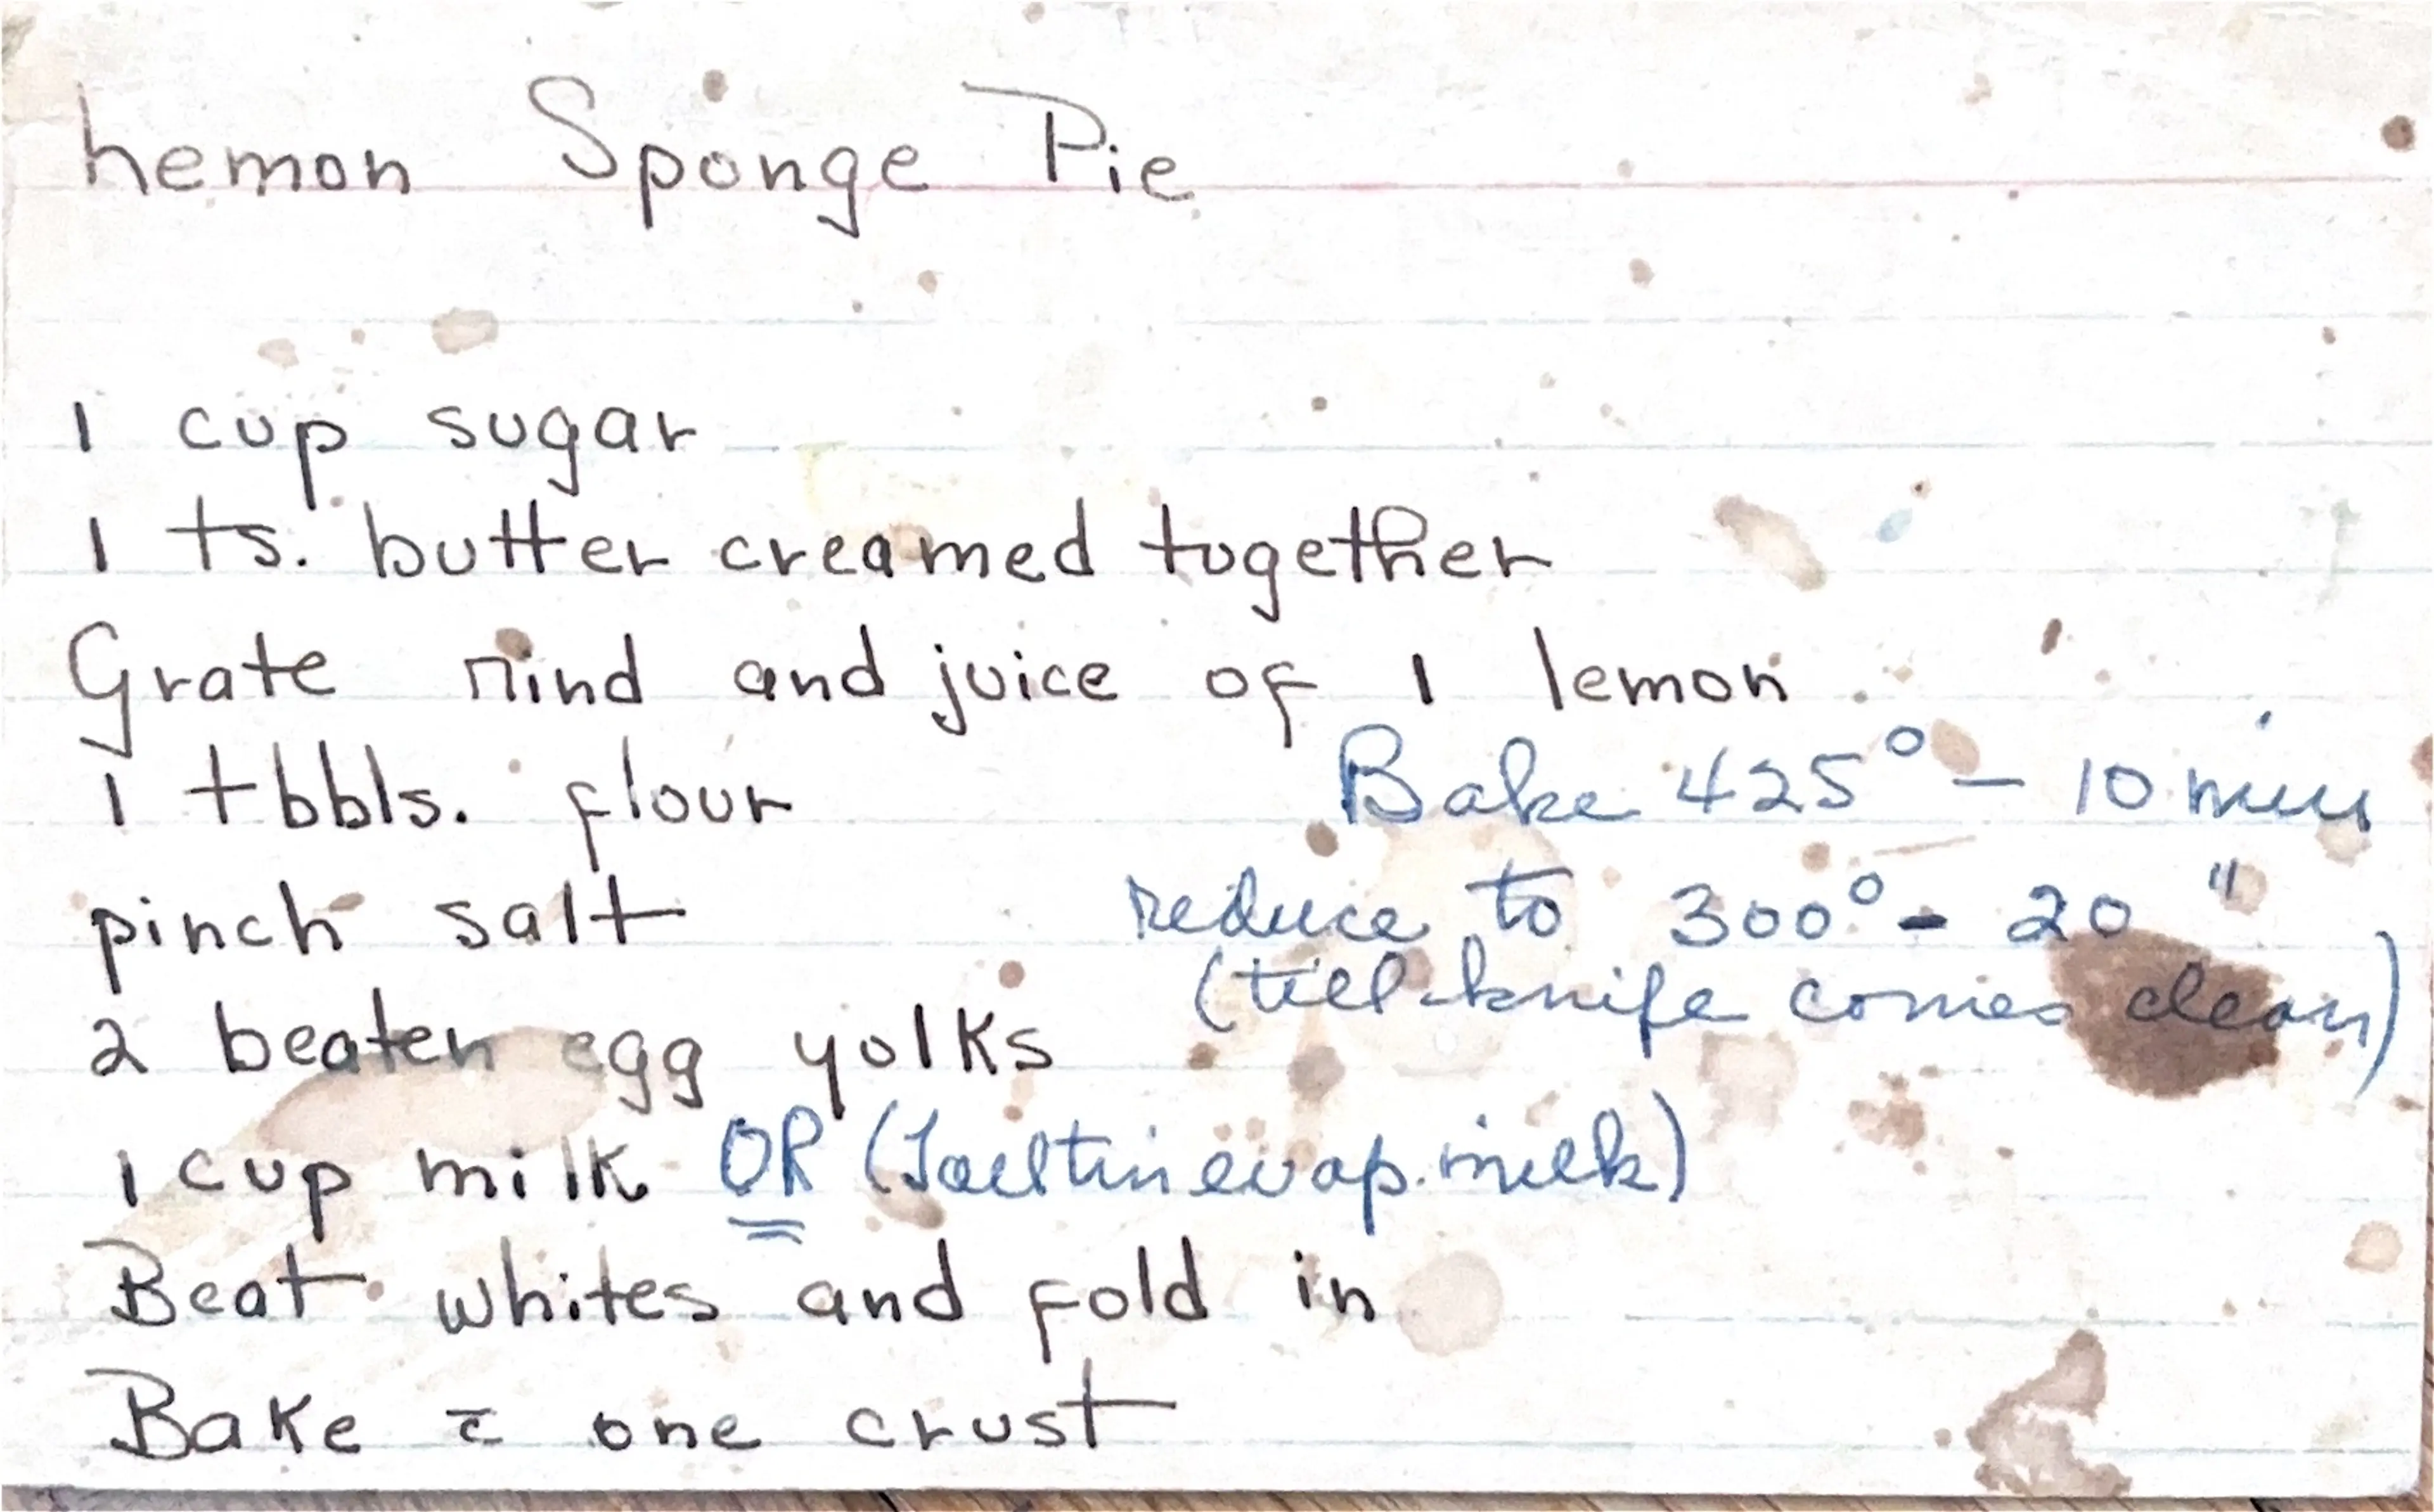 Lemon Sponge Pie
1 cup sugar
1 ts. butter creamed together
Grate rind and juice of 1 lemon
1 tbbls. flour
Bake 425° - 10 min
pinch salt
reduce to 300° - 20 "
(till knife comes clean)
2 beaten egg yolks
1 cup milk OR (1 tin evap. milk)
Beat whites and fold in
Bake c̄ one crust